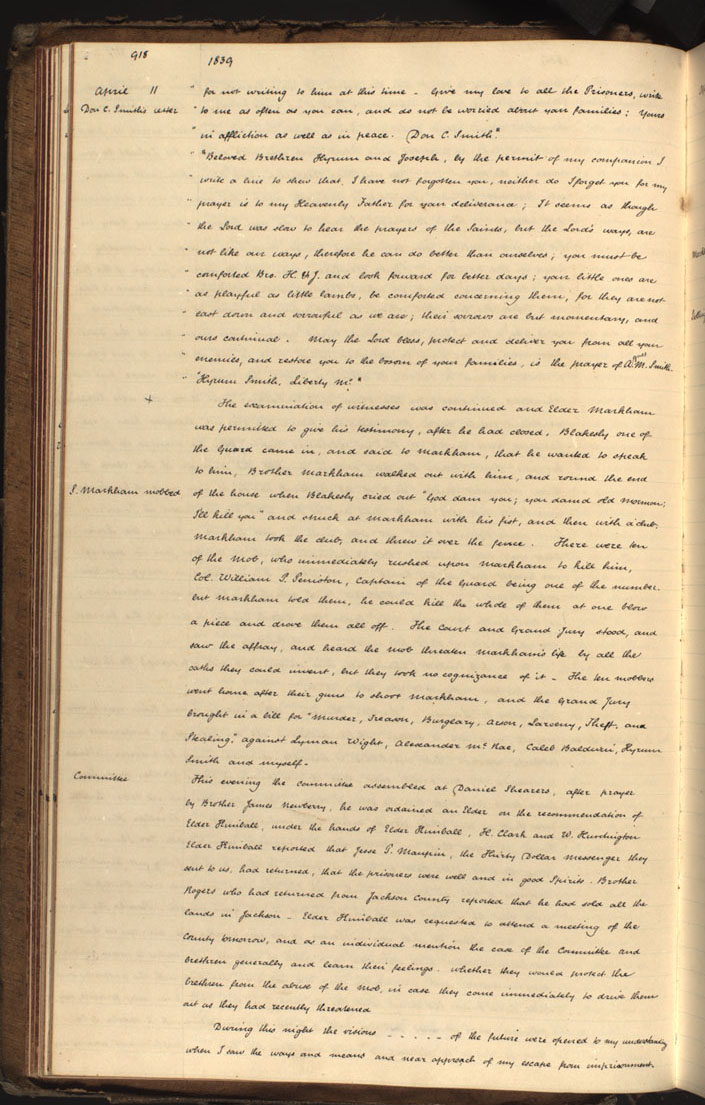 918 1839
April 11 " for not writing to him at this time – Give my love to all the Prisoners, write
Don C. Smith's letter " to me as often as you can, and do not be worried about your families; Yours
" in affliction as well as in peace. Don C. Smith".
" "Beloved Brethren Hyrum and Joseph, by the permit of my companion I
" write a line to shew that I have not forgotten you, neither do I forget you for my
" prayer is to my Heavenly Father for your deliverance; It seems as though
" the Lord was slow to hear the prayers of the Saints, but the Lord's ways, are
" not like our ways, therefore he can do better than ourselves; you must be
" comforted Bro. H. & J. and look forward for better days; your little ones are
" as playful as little lambs, be comforted concerning them, for they are not
" cast down and sorrowful as we are; their sorrows are but momentary, and
" ours continual. May the Lord bless, protect and deliver you from all your
" enemies, and restore you to the bosom of your families, is the prayer of A. M. Smith.
" Hyrum Smith, Liberty Mo."
+ The examination of witnesses was continued and Elder Markham
was permitted to give his testimony, after he had closed, Blakesly one of
the Guard came in, and said to Markham, that he wanted to speak
to him, Brother Markham walked out with him, and round the end
S. Markham mobbed of the house when Blakesly cried out "God damn you; you damd old mormon;
I'll kill you" and struck at Markham with his fist, and then with a club.
Markham took the club, and threw it over the fence. There were ten
of the Mob, who immediately rushed upon Markham to kill him,
Col. William P. Peniston, Captain of the Guard being one of the number.
but Markham told them, he could kill the whole of them at one blow
a piece and drove them all off. The Court and Grand Jury stood, and
saw the affray, and heard the mob threaten Markham's life by all the
oaths they could invent, but they took no cognizance of it – The ten mobbers
went home after their guns to shoot Markham, and the Grand Jury
brought in a bill for "Murder, Treason, Burglary, Arson, Larceny, Theft, and
Stealing" against Lyman Wight, Alexander McRae, Caleb Baldwin, Hyrum
Smith and myself –
Committee This evening the committee assembled at Daniel Shearers, after prayer
by Brother James Newberry, he was ordained an Elder on the recommendation of
Elder Kimball, under the hands of Elder Kimball, H. Clark and W. Huntington
Elder Kimball reported that Jesse P. Maupin, the Thirty Dollar Messenger they
sent to us, had returned, that the prisoners were well and in good Spirits. Brother
Rogers who had returned from Jackson County reported that he had sold all the
lands in Jackson – Elder Kimball was requested to attend a meeting of the
County tomorrow, and as an individual mention the case of the Committee and
brethren generally and learn their feelings. whether they would protect the
brethren from the abuse of the Mob, in case they come immediately to drive them
out as they had recently threatened
During this night the visions - - - - - of the future were opened to my understanding
when I saw the ways and means and near approach of my escape from imprisonment.